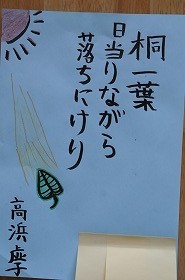 桐一葉
日当りながら
落ちにけり
高浜虚子